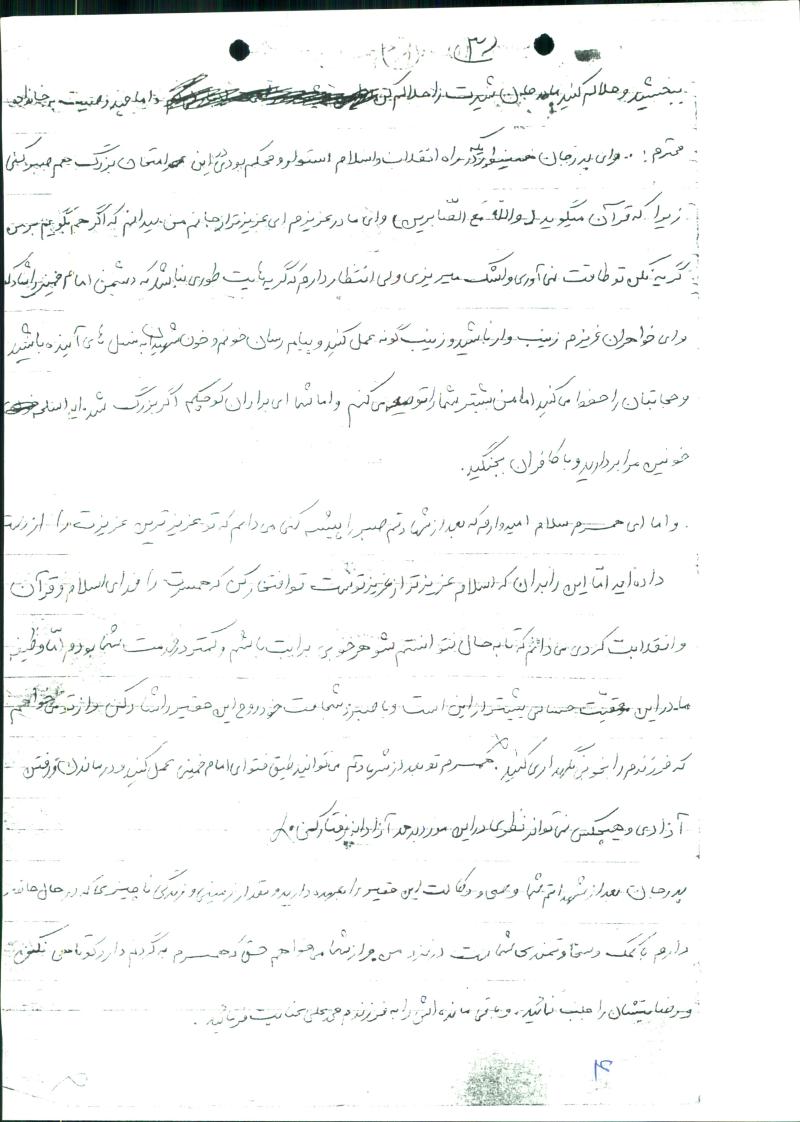 (۳)
ببخشید و حلالم کنید مادر جان شیرت را حلالم کن و اما چند وصیت به خانواده
محترم: .. و ای پدر جان همینطور که در راه انقلاب و اسلام استوار و محکم بودی در این امتحان بزرگ هم صبر کنی
زیرا که قرآن میگوید (والله مع الصابرین) و ای مادر عزیزم ای عزیزتر از جانم من میدانم که اگر هم بگویم بر من
گریه نکن تو طاقت نمی‌آوری و اشک میریزی ولی انتظار دارم که گریه‌هایت طوری نباشد که دشمن امام خمینی را شاد کند
و ای خواهران عزیزم زینب وار باشید و زینب گونه عمل کنید و پیام رسان خونم و خون شهیدان به نسل های آینده باشید
و حجابتان را حفظ می‌کنید اما من بیشتر شما را توصیه می‌کنم و اما شما ای برادران کوچکم اگر بزرگ شدید اسلحه
خونین مرا بردارید و با کافران بجنگید.
. و اما ای همسرم سلام امیدوارم که بعد از شهادتم صبر را پیشه کنی می دانم که تو عزیزترین عزیزت را از دست
داده‌اید اما این را بدان که اسلام عزیزتر از عزیز توست تو افتخار کن که همسرت را فدای اسلام و قرآن
و انقلابت کردی می دانم که تا به حال نتوانستم شوهر خوبی برایت باشم و کمتر در خدمت شما بودم اما وظیفه
ما در این موقعیت حساس بیشتر از این است و با صبر و شهامت خود روح این حقیر را شاد کن و از تو می خواهم
که فرزندم را بخوبی نگهداری کنید. همسرم تو بعد از شهادتم می توانید طبق فتوای امام خمینی عمل کنید و در ماندن و رفتن
آزادی و هیچکس نمی تواند نظری در این مورد بدهد آزادانه رفتار کنی
پدر جان بعد از شهادتم شما وصی و وکالت این حقیر را بعهده دارید و مقدار زمینی و زندگی ناچیزی که در حال حاضر
دارم با کمک و سخاوتمندی شماست در نزد من و از شما می خواهم حقی که همسرم به گردنم دارد کوتاهی نکنید
و رضایتشان را جلب نمائید. و باقی مانده‌اش را به فرزندم عنایت فرمائید.